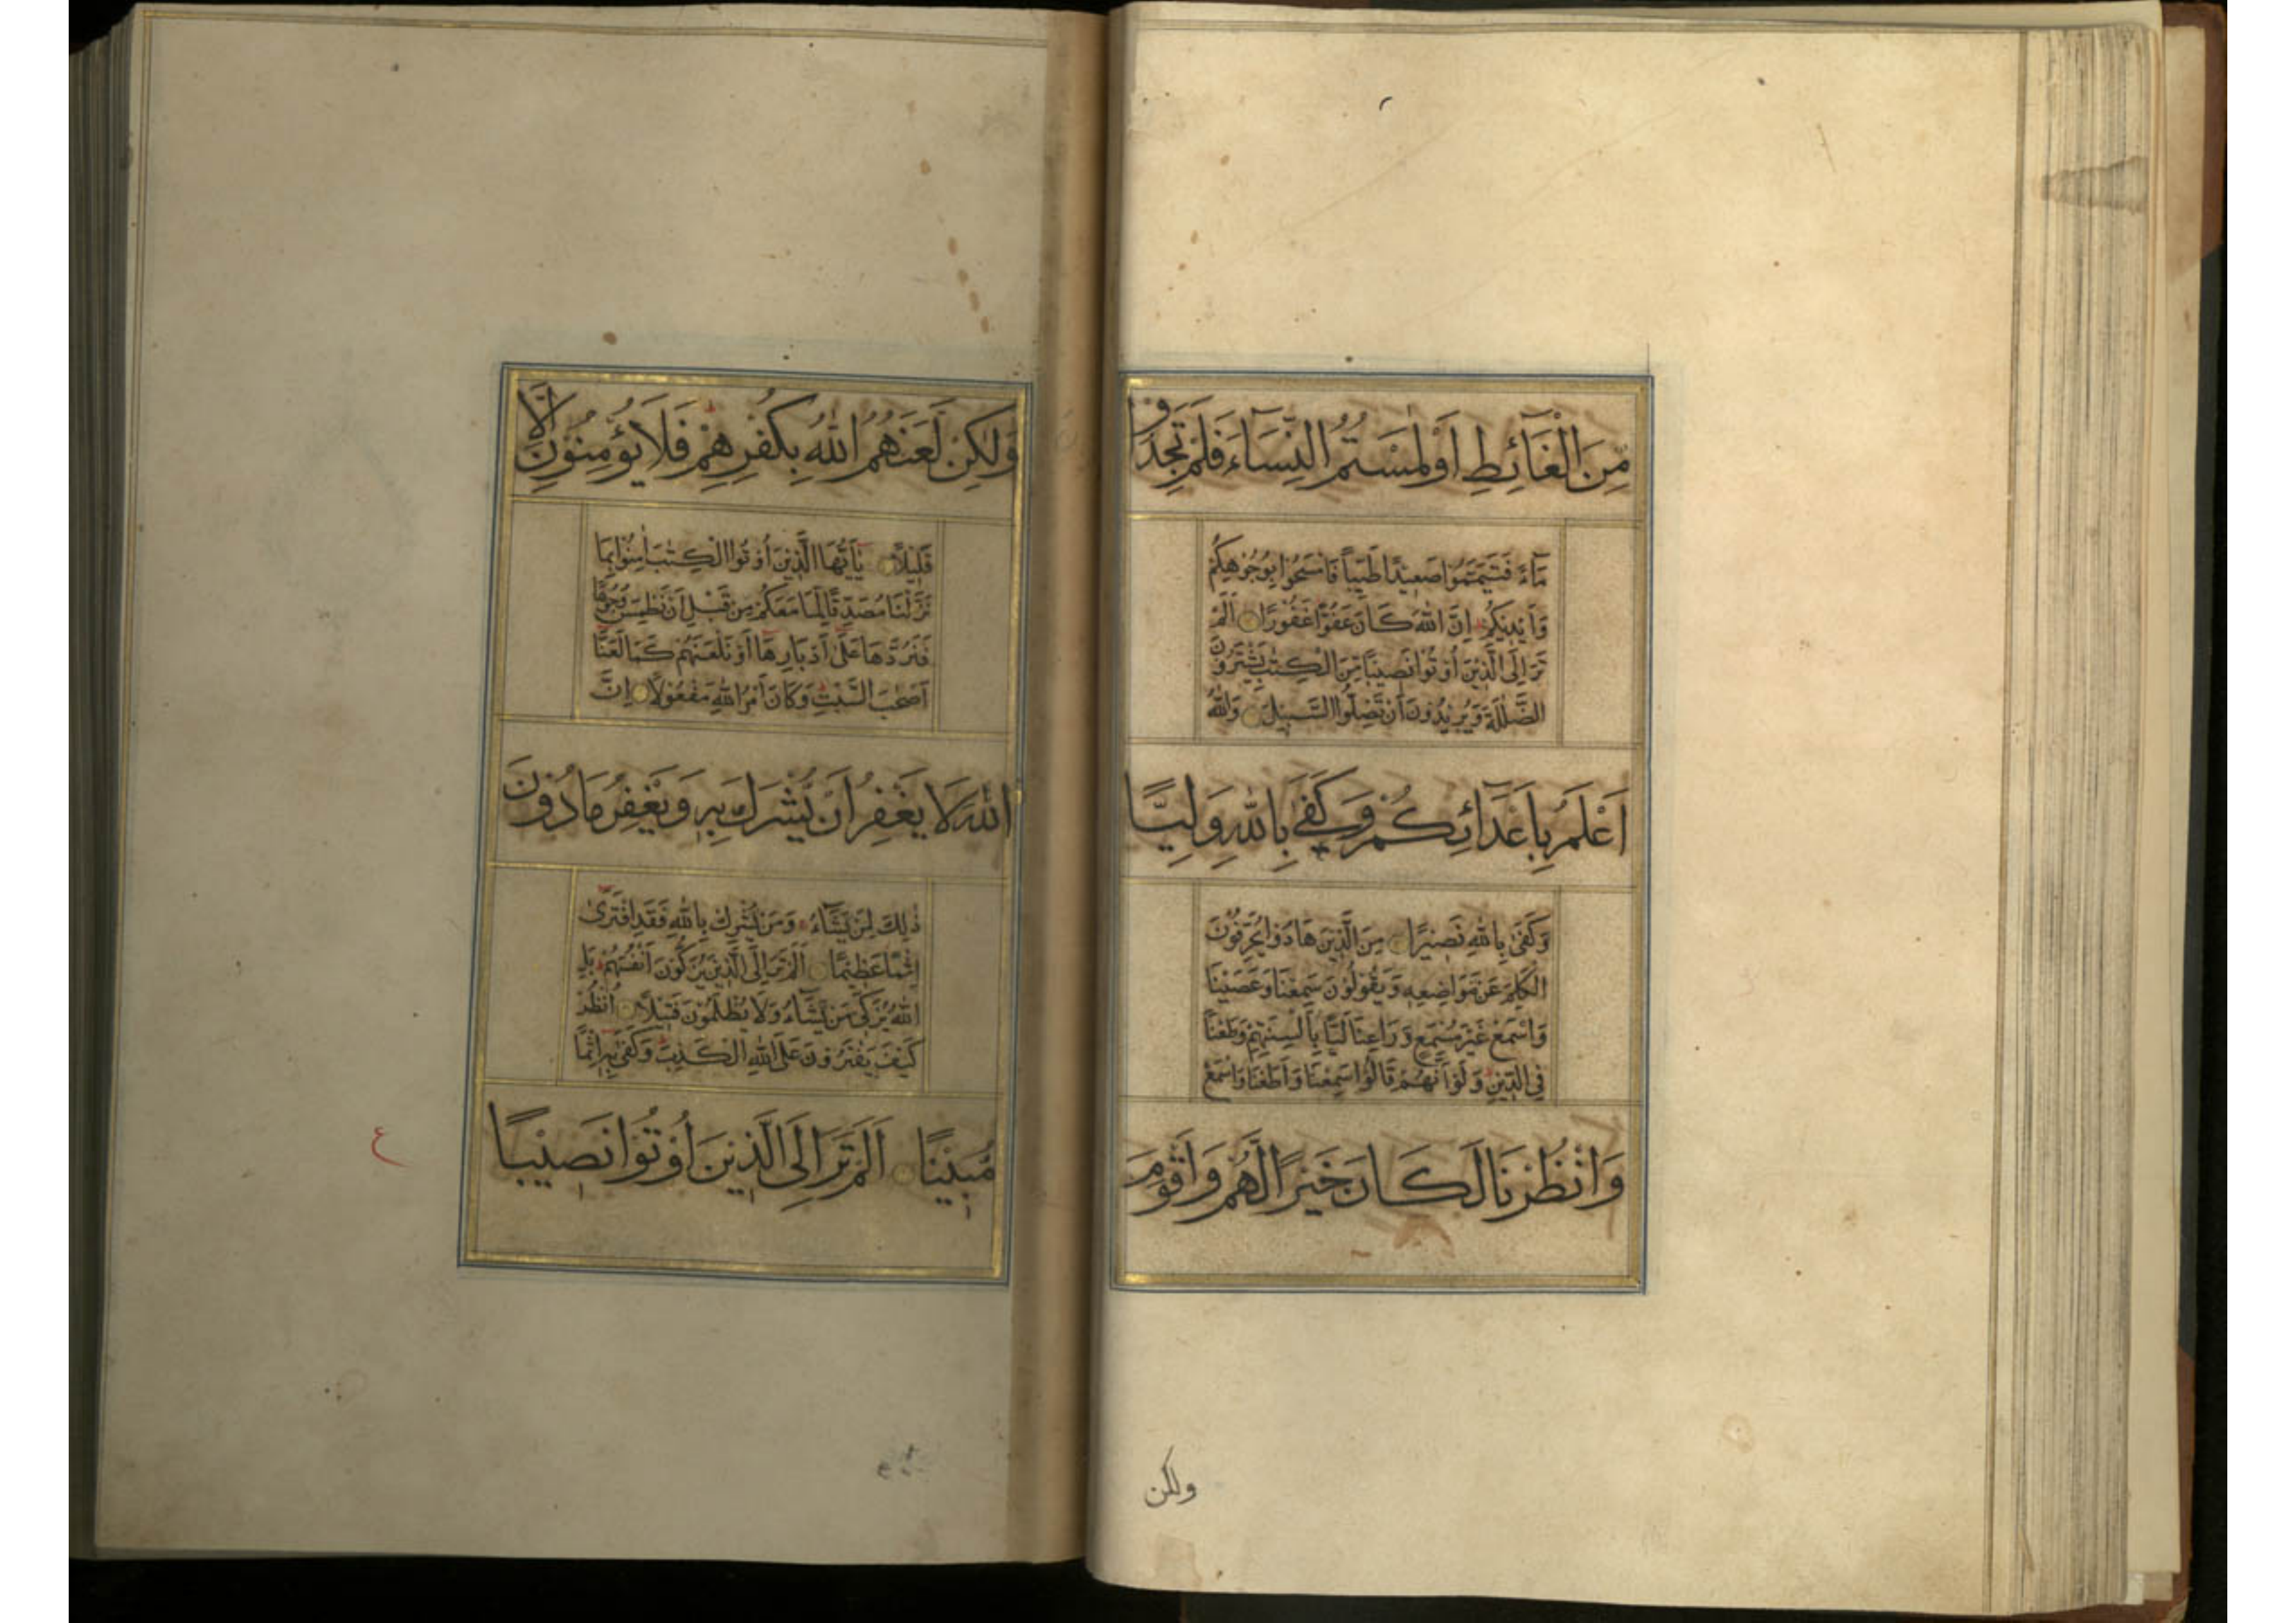 مِنَ الْغَآئِطِ اَوْ لٰمَسْتُمُ النِّسَآءَ فَلَمْ تَجِدُوا
مَآءً فَتَيَمَّمُوْا صَعِيْدًا طَيِّبًا فَامْسَحُوْا بِوُجُوْهِكُمْ
وَاَيْدِيْكُمْ اِنَّ اللّٰهَ كَانَ عَفُوًّا غَفُوْرًا اَلَمْ
تَرَ اِلَى الَّذِيْنَ اُوْتُوْا نَصِيْبًا مِّنَ الْكِتٰبِ يَشْتَرُوْنَ
الضَّلٰلَةَ وَيُرِيْدُوْنَ اَنْ تَضِلُّوا السَّبِيْلَ وَاللّٰهُ
اَعْلَمُ بِاَعْدَآئِكُمْ وَكَفٰى بِاللّٰهِ وَلِيًّا
وَكَفٰى بِاللّٰهِ نَصِيْرًا مِنَ الَّذِيْنَ هَادُوْا يُحَرِّفُوْنَ
الْكَلِمَ عَنْ مَوَاضِعِهٖ وَيَقُوْلُوْنَ سَمِعْنَا وَعَصَيْنَا
وَاسْمَعْ غَيْرَ مُسْمَعٍ وَرَاعِنَا لَيًّا بِاَلْسِنَتِهِمْ وَطَعْنًا
فِى الدِّيْنِ وَلَوْ اَنَّهُمْ قَالُوْا سَمِعْنَا وَاَطَعْنَا وَاسْمَعْ
وَانْظُرْنَا لَكَانَ خَيْرًا لَّهُمْ وَاَقْوَمَ
ولكن
وَلٰكِنْ لَعَنَهُمُ اللّٰهُ بِكُفْرِهِمْ فَلَا يُؤْمِنُوْنَ اِلَّا
قَلِيْلًا يٰٓاَيُّهَا الَّذِيْنَ اُوْتُوا الْكِتٰبَ اٰمِنُوْا بِمَا
نَزَّلْنَا مُصَدِّقًا لِّمَا مَعَكُمْ مِنْ قَبْلِ اَنْ نَطْمِسَ وُجُوْهًا
فَنَرُدَّهَا عَلٰى اَدْبَارِهَا اَوْ نَلْعَنَهُمْ كَمَا لَعَنَّا
اَصْحٰبَ السَّبْتِ وَكَانَ اَمْرُ اللّٰهِ مَفْعُوْلًا اِنَّ
اللّٰهَ لَا يَغْفِرُ اَنْ يُّشْرَكَ بِهٖ وَيَغْفِرُ مَا دُوْنَ
ذٰلِكَ لِمَنْ يَّشَآءُ وَمَنْ يُّشْرِكْ بِاللّٰهِ فَقَدِ افْتَرٰى
اِثْمًا عَظِيْمًا اَلَمْ تَرَ اِلَى الَّذِيْنَ يُزَكُّوْنَ اَنْفُسَهُمْ بَلِ
اللّٰهُ يُزَكِّىْ مَنْ يَّشَآءُ وَلَا يُظْلَمُوْنَ فَتِيْلًا اُنْظُرْ
كَيْفَ يَفْتَرُوْنَ عَلَى اللّٰهِ الْكَذِبَ وَكَفٰى بِهٖ اِثْمًا
مُّبِيْنًا اَلَمْ تَرَ اِلَى الَّذِيْنَ اُوْتُوْا نَصِيْبًا
ع